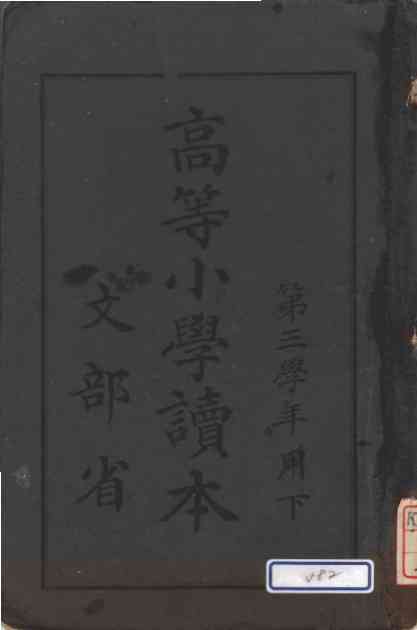 第三學年用下
高等小學讀本
文部省